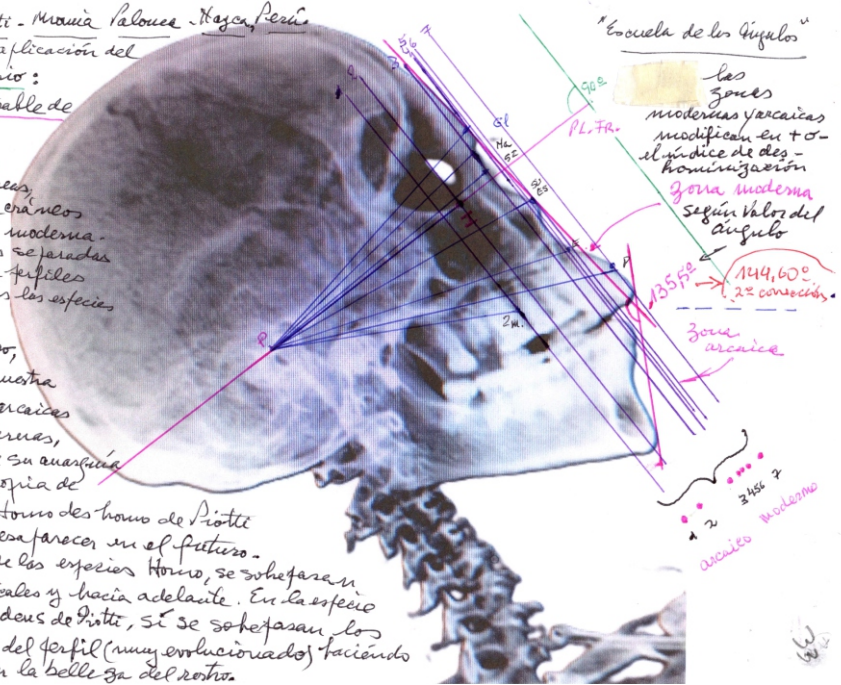 ti - Momia Palonca - Nazca, Perú
aplicación del
io:
able de
eas,
cráneos
moderna.
separadas
perfiles
s las especies
o,
uestra
arcaicas
ernas,
su anarquía
opia de
Homo deshomo de Piotti
esaparecer en el futuro.
e las especies Homo, se sobrepasan
cales y hacia adelante. En la especie
deus de Piotti, sí se sobrepasan los
del perfil (muy evolucionado) haciendo
la belleza del rostro.
"Escuela de los Ángulos"
las
zonas
modernas y arcaicas
modifican en + o -
el índice de des-
hominización
zona moderna
según valor del
ángulo
90º
PL. FR.
7
Gl
Na
P
2 m.
135,5º
144,60º
2ª corrección
zona
arcaica
1 2 3 4 5 6 7
arcaico moderno